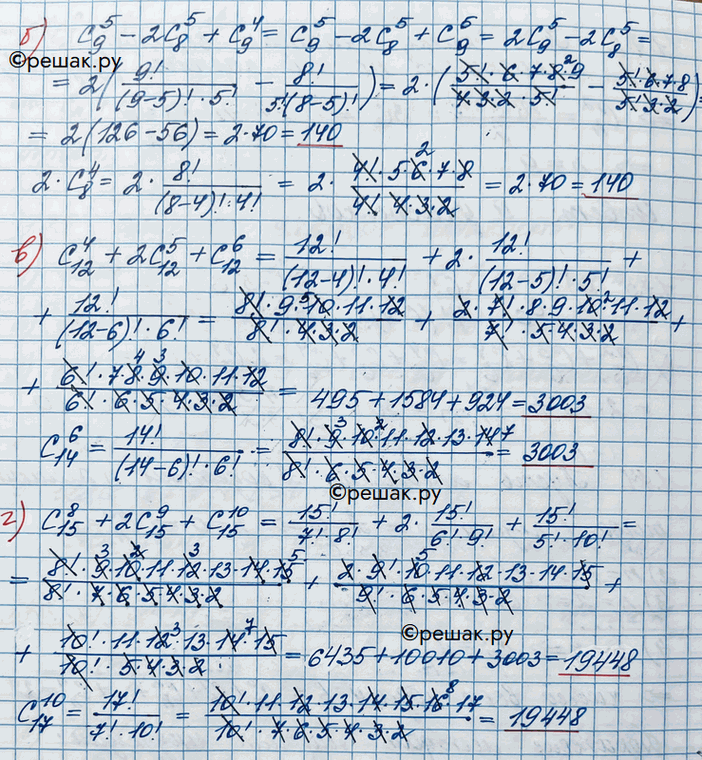 б) C₉⁵ − 2C₈⁵ + C₉⁴ = C₉⁵ − 2C₈⁵ + C₉⁵ = 2C₉⁵ − 2C₈⁵ =
©решак.ру
= 2(9!/((9−5)!·5!) − 8!/(5!(8−5)!)) = 2·(5!·6·7·8²·9/(4·3·2·5!) − 5!·6·7·8/(5!·3·2)) =
= 2(126−56) = 2·70 = 140
2·C₈⁴ = 2·8!/((8−4)!·4!) = 2·4!·5·6²·7·8/(4!·4·3·2) = 2·70 = 140
в) C₁₂⁴ + 2C₁₂⁵ + C₁₂⁶ = 12!/((12−4)!·4!) + 2·12!/((12−5)!·5!) +
+ 12!/((12−6)!·6!) = 8!·9·10⁵·11·12/(8!·4·3·2) + 2·7!·8·9·10²·11·12/(7!·5·4·3·2) +
+ 6!·7·8⁴·9³·10·11·12/(6!·6·5·4·3·2) = 495+1584+924 = 3003
C₁₄⁶ = 14!/((14−6)!·6!) = 8!·9³·10²·11·12·13·14⁷/(8!·6·5·4·3·2) = 3003
©решак.ру
г) C₁₅⁸ + 2C₁₅⁹ + C₁₅¹⁰ = 15!/(7!·8!) + 2·15!/(6!·9!) + 15!/(5!·10!) =
= 8!·9³·10²·11·12³·13·14·15⁵/(8!·7·6·5·4·3·2) + 2·9!·10⁵·11·12·13·14·15/(9!·6·5·4·3·2) +
©решак.ру
+ 10!·11·12³·13·14⁷·15/(10!·5·4·3·2) = 6435+10010+3003 = 19448
C₁₇¹⁰ = 17!/(7!·10!) = 10!·11·12·13·14·15·16⁸·17/(10!·7·6·5·4·3·2) = 19448